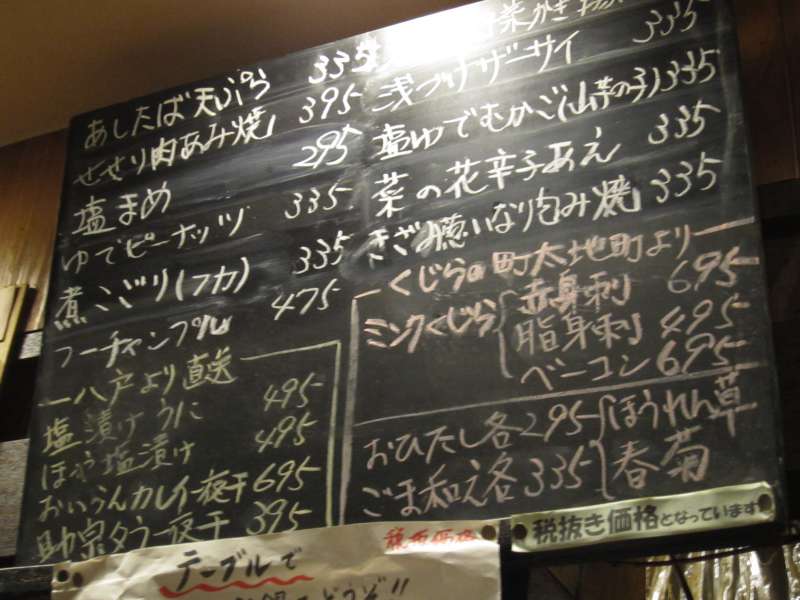 あしたば天ぷら 335
せせり肉あみ焼 395
塩まめ 295
ゆでピーナッツ 335
煮こごり(フカ) 335
フーチャンプル 475
八戸より直送
塩漬けうに 495
ほや塩漬け 495
おいらんカレイ一夜干 695
助宗タラ一夜干 395
菜かき揚
浅づけザーサイ 335
塩ゆでむかご(山芋の子) 335
菜の花辛子あえ 335
きざみ葱いなり包み焼 335
くじらの町太地町より
ミンクくじら
赤身刺 695
脂身刺 495
ベーコン 695
おひたし各295
ごま和え各335
ほうれん草
春菊
税抜き価格となっています
税抜価格
テーブルで
どうぞ!!